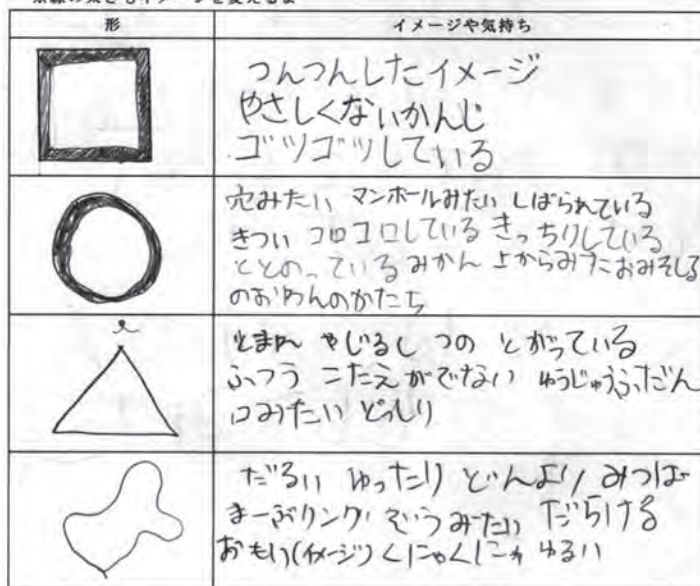 形
イメージや気持ち
つんつんしたイメージ
やさしくないかんじ
ゴツゴツしている
穴みたい マンホールみたい しばられている
きつい コロコロしている きっちりしている
ととのっている みかん 上からみたおみそしる
のおわんのかたち
とまれ やじるし つの とがっている
ふつう こたえがでない ゆうじゅうふだん
口みたい どっしり
だるい ゆったり どんより みつば
まーぶリング ぞうみたい だらける
おもい(イメージ) くにゃくにゃ ゆるい